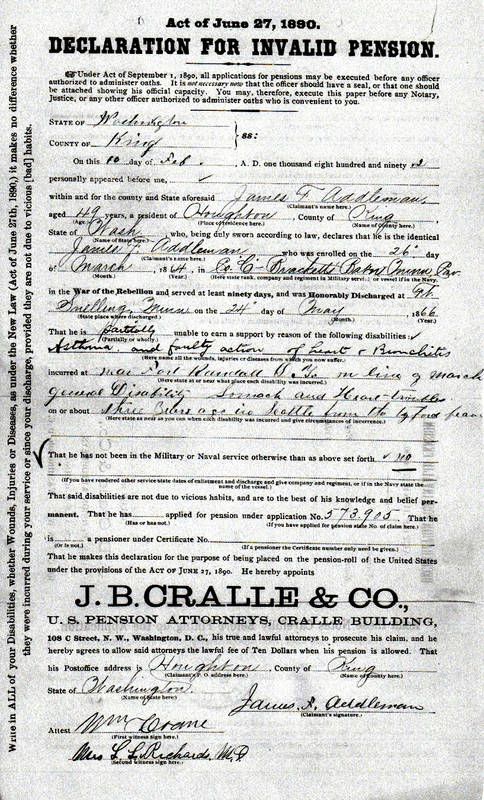 Act of June 27, 1890.
DECLARATION FOR INVALID PENSION.
Under Act of September 1, 1890, all applications for pensions may be executed before any officer
authorized to administer oaths. It is not necessary now that the officer should have a seal, or that one should
be attached showing his official capacity. You may, therefore, execute this paper before any Notary,
Justice, or any other officer authorized to administer oaths who is convenient to you.
STATE OF Washington
COUNTY OF King ss:
On this 10 day of Feb. , A. D. one thousand eight hundred and ninety 2
personally appeared before me,
within and for the county and State aforesaid James T. Addleman,
(Claimant's name here.)
aged 49 years, a resident of Houghton, County of King
(Age.) (Place of residence here.) (Name of county here.)
State of Wash, who, being duly sworn according to law, declares that he is the identical
(Name of State here.)
James T. Addleman who was enrolled on the 26 day
(Claimant's name here.)
of March, 1864, in Co. C. Bracketts Batn Minn Cav.
(Month.) (Year.) (Here state rank, company and regiment in Military service, or vessel if in the Navy.
in the War of the Rebellion and served at least ninety days, and was Honorably Discharged at Ft.
Snelling, Minn on the 24 day of May, 1866
(State place where discharged.) (Month.) (Year.)
That he is partially unable to earn a support by reason of the following disabilities:
(Partially or wholly.)
Asthma and faulty action of heart & Bronchitis
(Here name all the wounds, injuries or diseases from which you now suffer.)
incurred at near Fort Randall in line of March
(Here state at or near what place each disability was incurred)
general Disability Stomach and Heart trouble
on or about three years ago in Seattle from the tyfoid fever
(Here state as near as you can when each disability was incurred and give circumstances of incurrence.)
That he has not been in the Military or Naval service otherwise than as above set forth. no
(If you have rendered other service state dates of enlistment and discharge and give company and regiment, or if in the Navy state the
name of the vessel.)
That said disabilities are not due to vicious habits, and are to the best of his knowledge and belief per-
manent. That he has applied for pension under application No. 573.905 That he
(Has or has not.) (If you have applied for pension state No. of claim here.)
is a pensioner under Certificate No.
(Or is not.) (If a pensioner the Certificate number only need be given.)
That he makes this declaration for the purpose of being placed on the pension-roll of the United States
under the provisions of the ACT OF JUNE 27, 1890. He hereby appoints
J. B. CRALLE & CO.,
U. S. PENSION ATTORNEYS, CRALLE BUILDING,
108 C Street, N. W., Washington, D. C., his true and lawful attorneys to prosecute his claim, and he
hereby agrees to allow said attorneys the lawful fee of Ten Dollars when his pension is allowed. That
his Postoffice address is Houghton, County of King
(Claimant's P. O. address here.) (Name of County here.)
State of Washington.
(Name of State here.)
James T. Addleman
(Claimant's signature.)
Attest Wm Crane
(First witness sign here.)
Mrs L. L. Richards, M.D
(Second witness sign here.)
Write in ALL of your Disabilities, whether Wounds, Injuries or Diseases, as under the New Law (Act of June 27th, 1890,) it makes no difference whether
they were incurred during your service or since your discharge, provided they are not due to vicious [bad] habits.